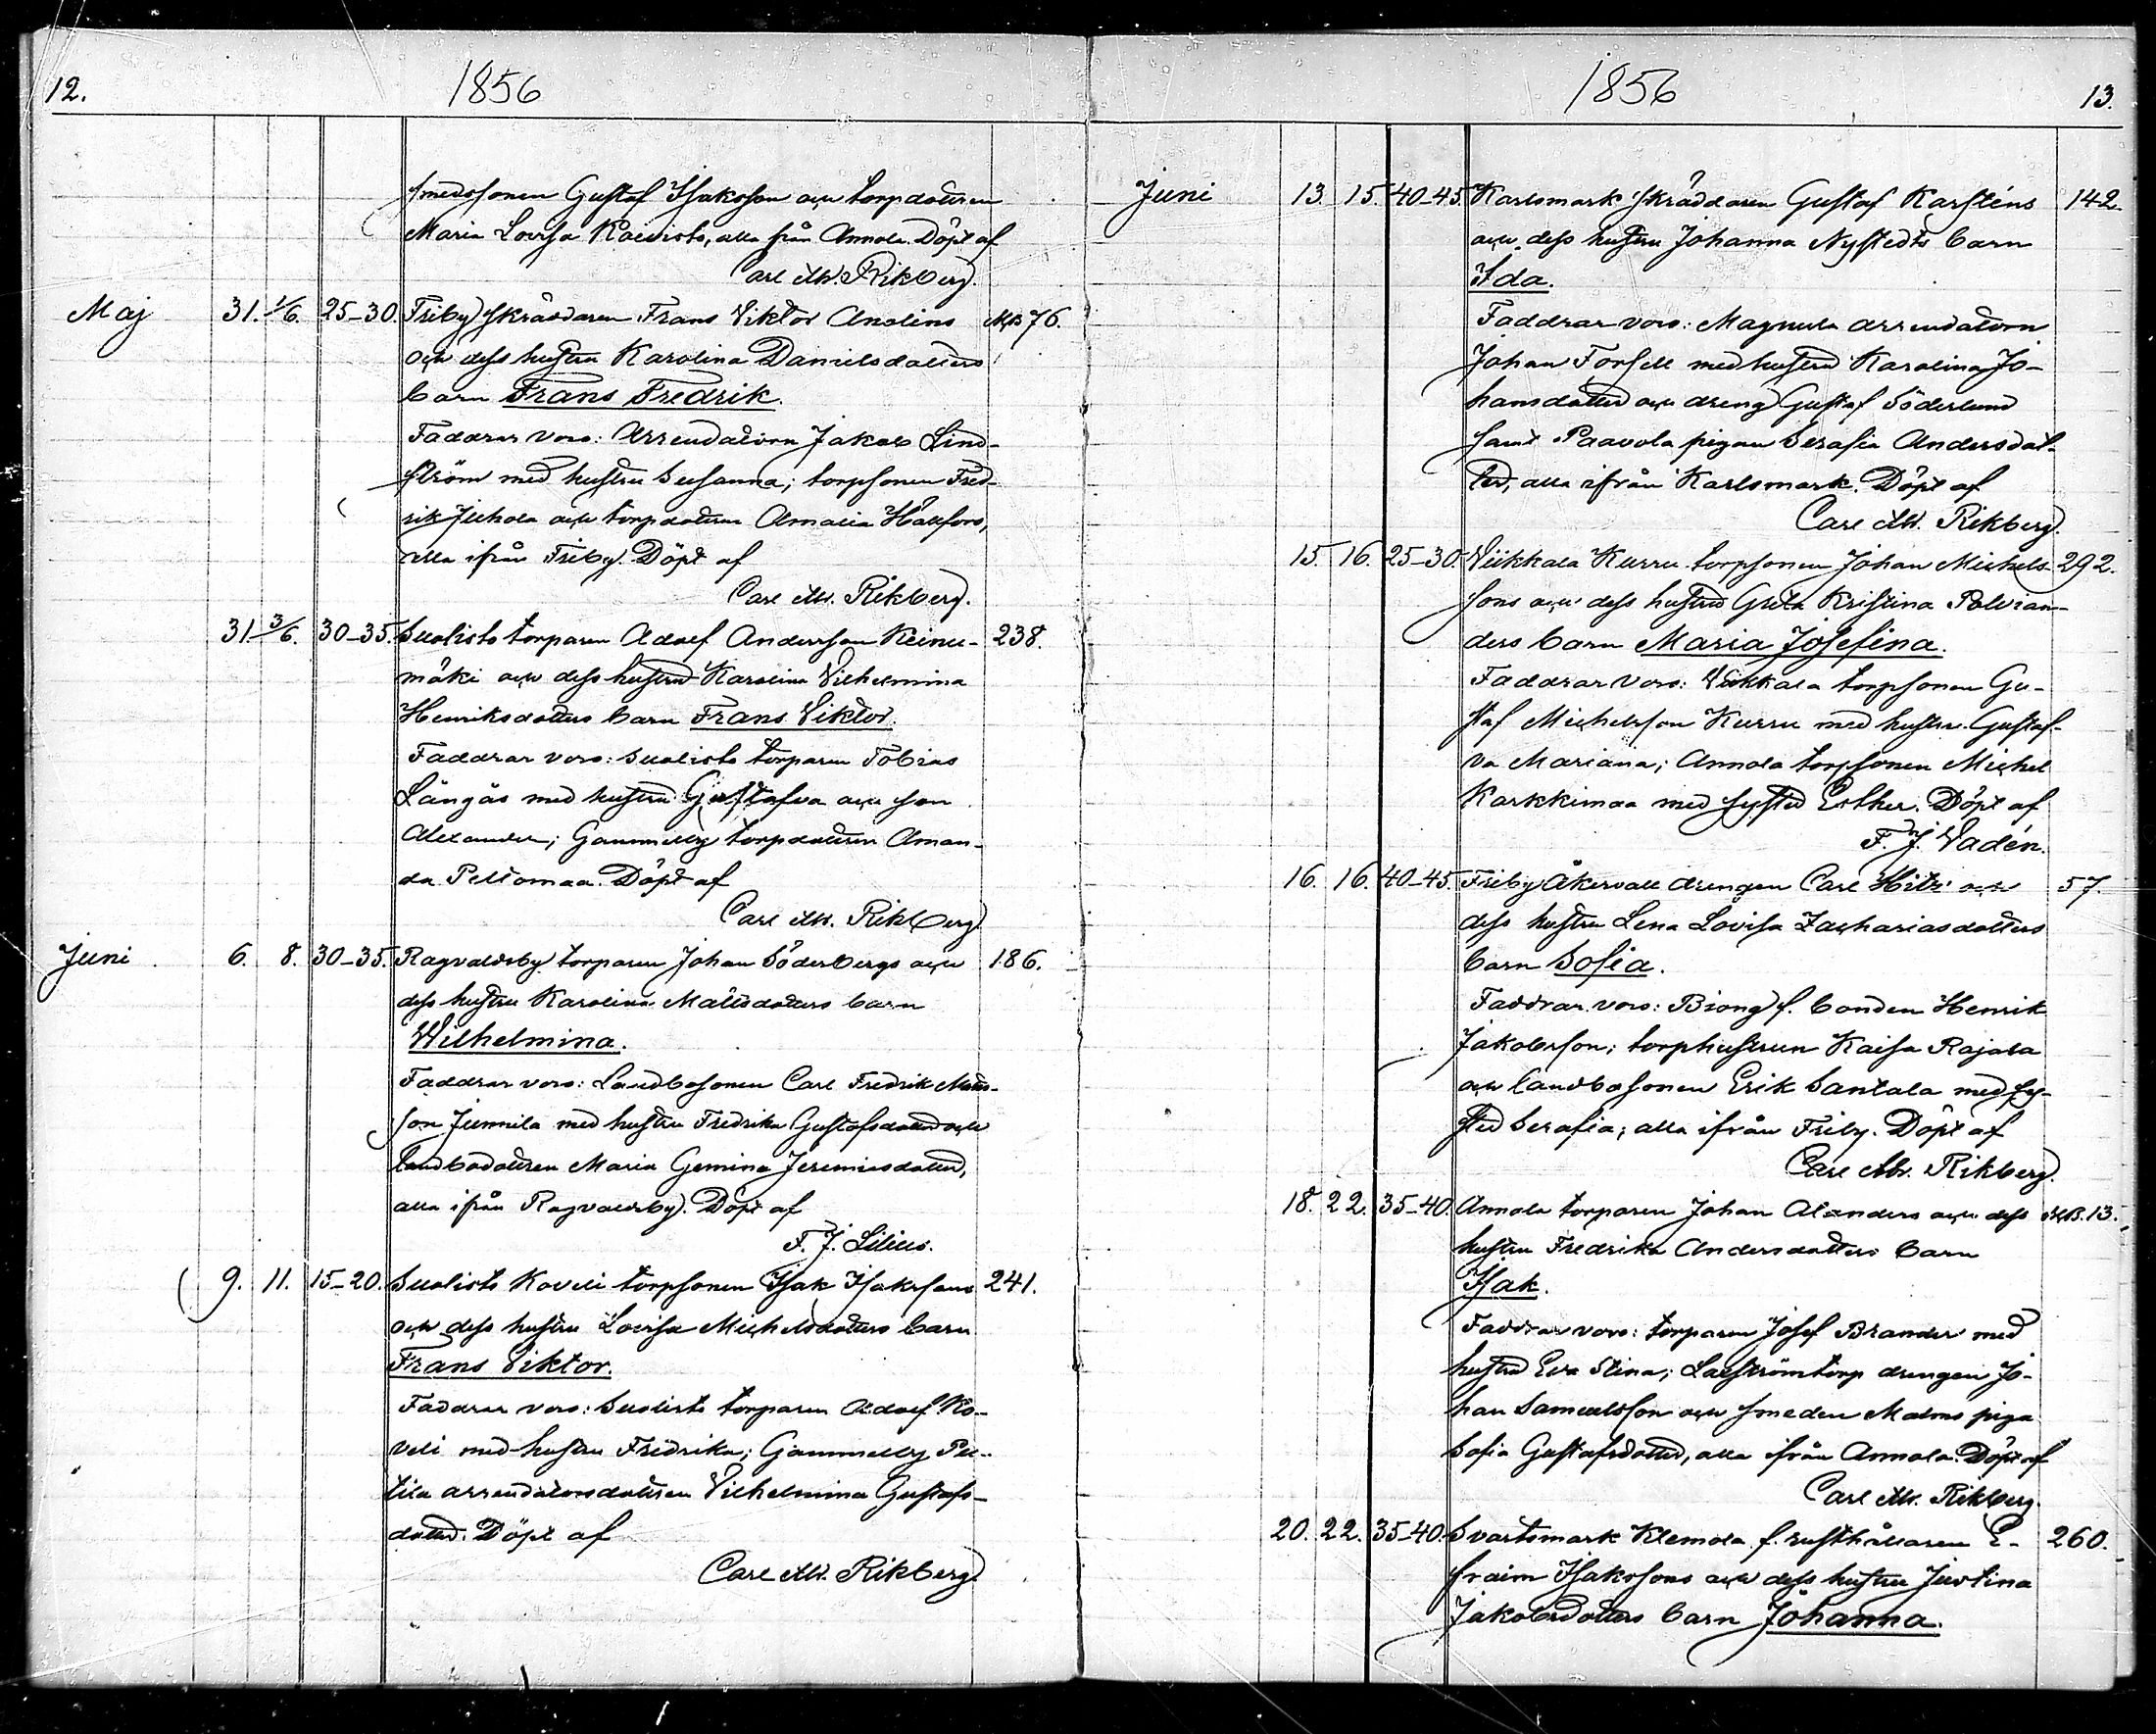 12.
1856
smedssonen Gustaf Isaksson och torpdottren
Maria Lovisa Koivisto, alla från Annola. Döpt af
Carl Alb. Rikberg.
Maj 31. 1/6. 25–30. Friby skräddaren Frans Viktor Anolins MB 76.
och dess hustru Karolina Danielsdotters
barn Frans Fredrik.
Faddrar voro: Arrendatorn Jakob Lind-
ström med hustru Susanna; torpsonen Fred-
rik Juhola och torpdottren Amalia Hällfors,
alla ifrån Friby. Döpt af
Carl Alb. Rikberg.
31. 3/6. 30–35. Suolisto torparen Adolf Andersson Keinu- 238.
mäki och dess hustru Karolina Vilhelmina
Henriksdotters barn Frans Viktor.
Faddrar voro: Suolisto torparen Tobias
Långås med hustru Gustafva och son
Alexander; Gammelby torpdottren Aman-
da Peltomaa. Döpt af
Carl Alb. Rikberg
Juni 6. 8. 30–35. Ragvaldsby torparen Johan Söderbergs och 186.
dess hustru Karolina Mattsdotters barn
Wilhelmina.
Faddrar voro: Landbosonen Carl Fredrik Matts-
son Junnila med hustru Fredrika Gustafsdotter och
landbodottren Maria Gemina Jeremiasdotter,
alla ifrån Ragvaldsby. Döpt af
F. J. Lilius.
9. 11. 15–20. Suolisto Koveli torpsonen Isak Isakssons 241.
och dess hustru Lovisa Michelsdotters barn
Frans Viktor.
Faddrar voro: Suolisto torparen Adolf Ko-
veli med hustru Fredrika; Gammelby
arrendatorsdottren Vilhelmina Gustafs-
dotter. Döpt af
Carl Alb. Rikberg.
1856
13.
Juni 13. 15. 40–45. Karlsmark skräddaren Gustaf Karsténs 142.
och dess hustru Johanna Nystedts barn
Ida.
Faddrar voro: Magnula arrendatorn
Johan Forsell med hustru Karolina Jo-
hansdotter och dreng Gustaf Söderlund
samt Paavola pigan Serafia Andersdot-
ter, alla ifrån Karlsmark. Döpt af
Carl Alb. Rikberg.
15. 16. 25–30. Viikkala Kurru torpsonen Johan Michels- 292.
sons och dess hustru Greta Kristina Polvian-
ders barn Maria Josefina.
Faddrar voro: Viikkala torpsonen Gu-
staf Michelsson Kurru med hustru Gustaf-
va Mariana; Annola torpsonen Michel
Karkkimaa med syster Esther. Döpt af
F. J. Vadén.
16. 16. 40–45. Friby Åkervall drengen Carl och 57.
dess hustru Lena Lovisa Zachariasdotters
barn Sofia.
Faddrar voro: Biong f. bonden Henrik
Jakobsson; torphustrun Kaisa Rajala
och landbosonen Erik Santala med sy-
ster Serafia; alla ifrån Friby. Döpt af
Carl Alb. Rikberg.
18. 22. 35–40. Annola torparen Johan Alanders och dess MB. 13.
hustru Fredrika Andersdotters barn
Isak.
Faddrar voro: torparen Josef Brander med
hustru Eva Stina; torp drengen Jo-
han Samuelsson och smeden Malms piga
Sofia Gustafsdotter, alla ifrån Annola. Döpt af
Carl Alb. Rikberg.
20. 22. 35–40. Svartsmark Klemola f. rusthållaren E- 260.
fraim Isakssons och dess hustru Justina
Jakobsdotters barn Johanna.